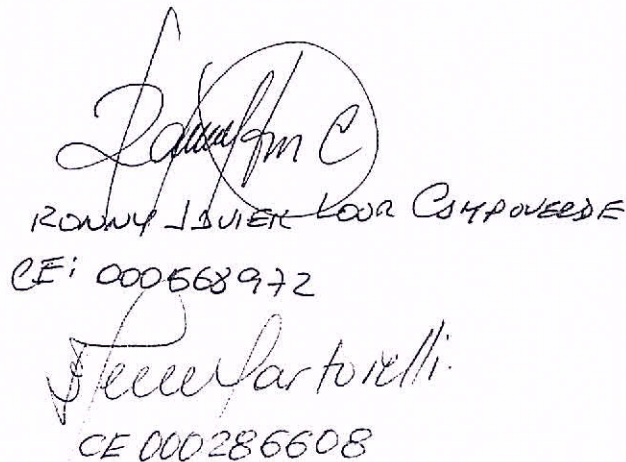 RONNY JAVIER LOOR CAMPOVERDE
CE: 000568972
Sartorelli.
CE 000286608